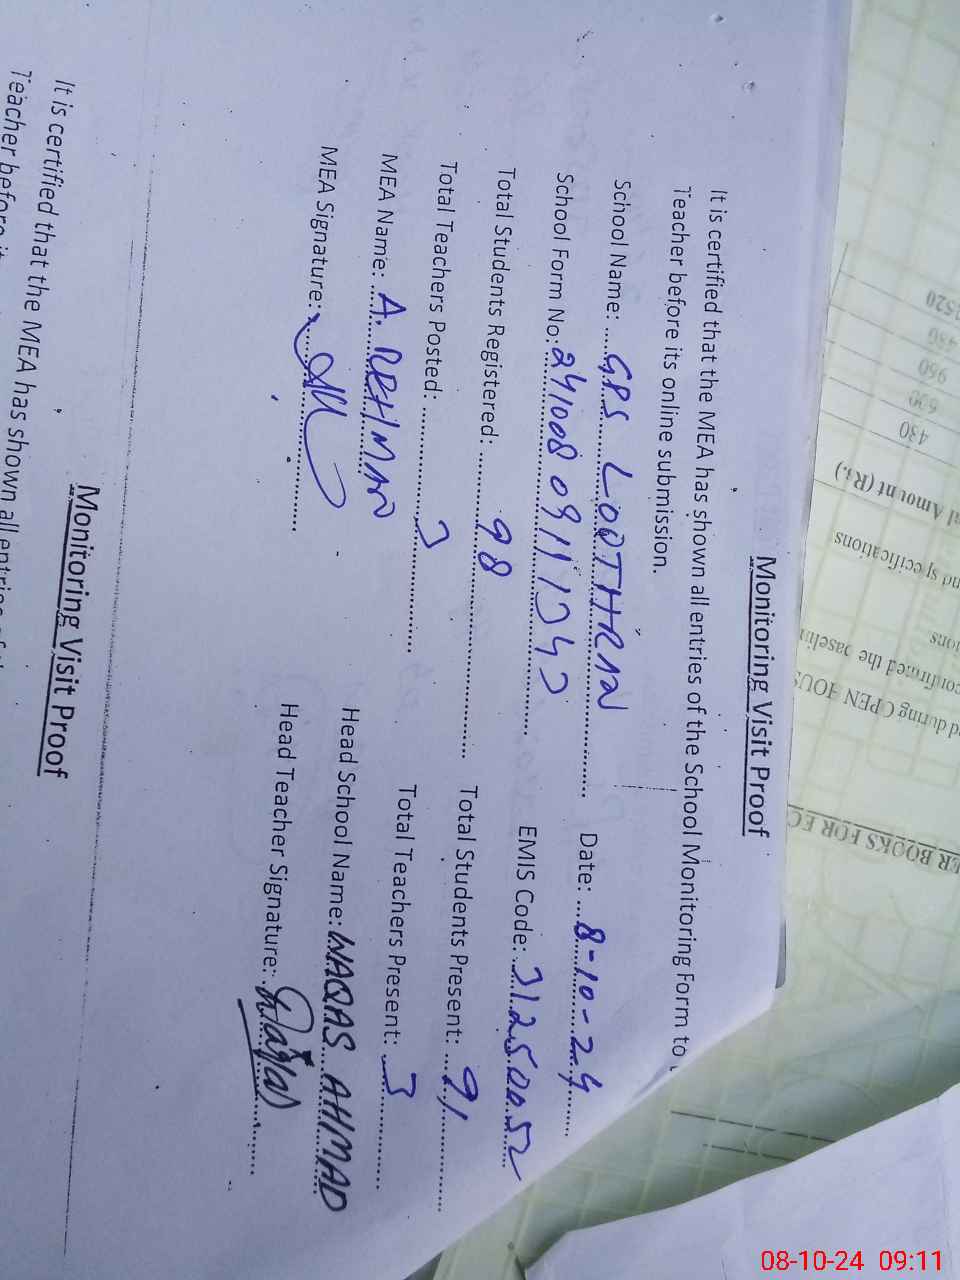 Monitoring Visit Proof
It is certified that the MEA has shown all entries of the School Monitoring Form to
Teacher before its online submission.
School Name: G.P.S LOOTHRAN Date: 8-10-24
School Form No: 24100809111343 EMIS Code: 31250052
Total Students Registered: 98 Total Students Present: 91
Total Teachers Posted: 3 Total Teachers Present: 3
MEA Name: A. REHMAN Head School Name: WAQAS AHMAD
MEA Signature: Head Teacher Signature: Waqas
Monitoring Visit Proof
It is certified that the MEA has shown all entries of
Teacher before
2520
450
960
600
430
Amount (Rs.)
specifications
confirmed the baseline
during OPEN HOUSE
BOOKS FOR EC
08-10-24 09:11